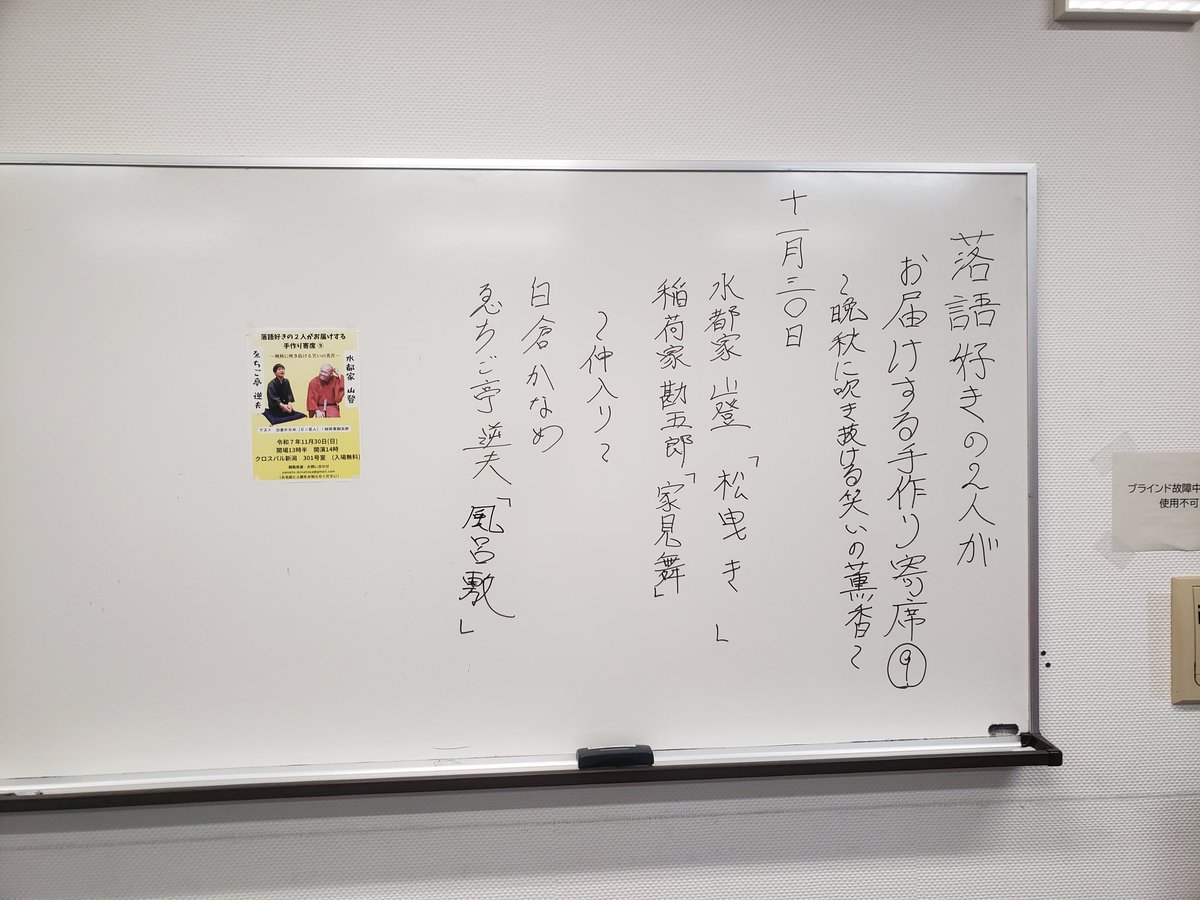 落語好きの2人が
お届けする手作り寄席⑨
〜晩秋に吹き抜ける笑いの薫香〜
十一月三〇日
水都家 山登「松曳き」
稲荷家 勘五郎「家見舞」
〜仲入り〜
白倉かなめ
ゑちご亭 逆夫「風呂敷」
落語好きの2人がお届けする
手作り寄席⑨
〜晩秋に吹き抜ける笑いの薫香〜
水都家 山登
ゑちご亭 逆夫
ゲスト 白倉かなめ(ピン芸人)/稲荷家勘五郎
令和7年11月30日(日)
開場13時半 開演14時
クロスパル新潟 301号室 (入場無料)
観覧希望・お問い合わせ
(お名前と人数をお知らせください)
ブラインド故障中
使用不可